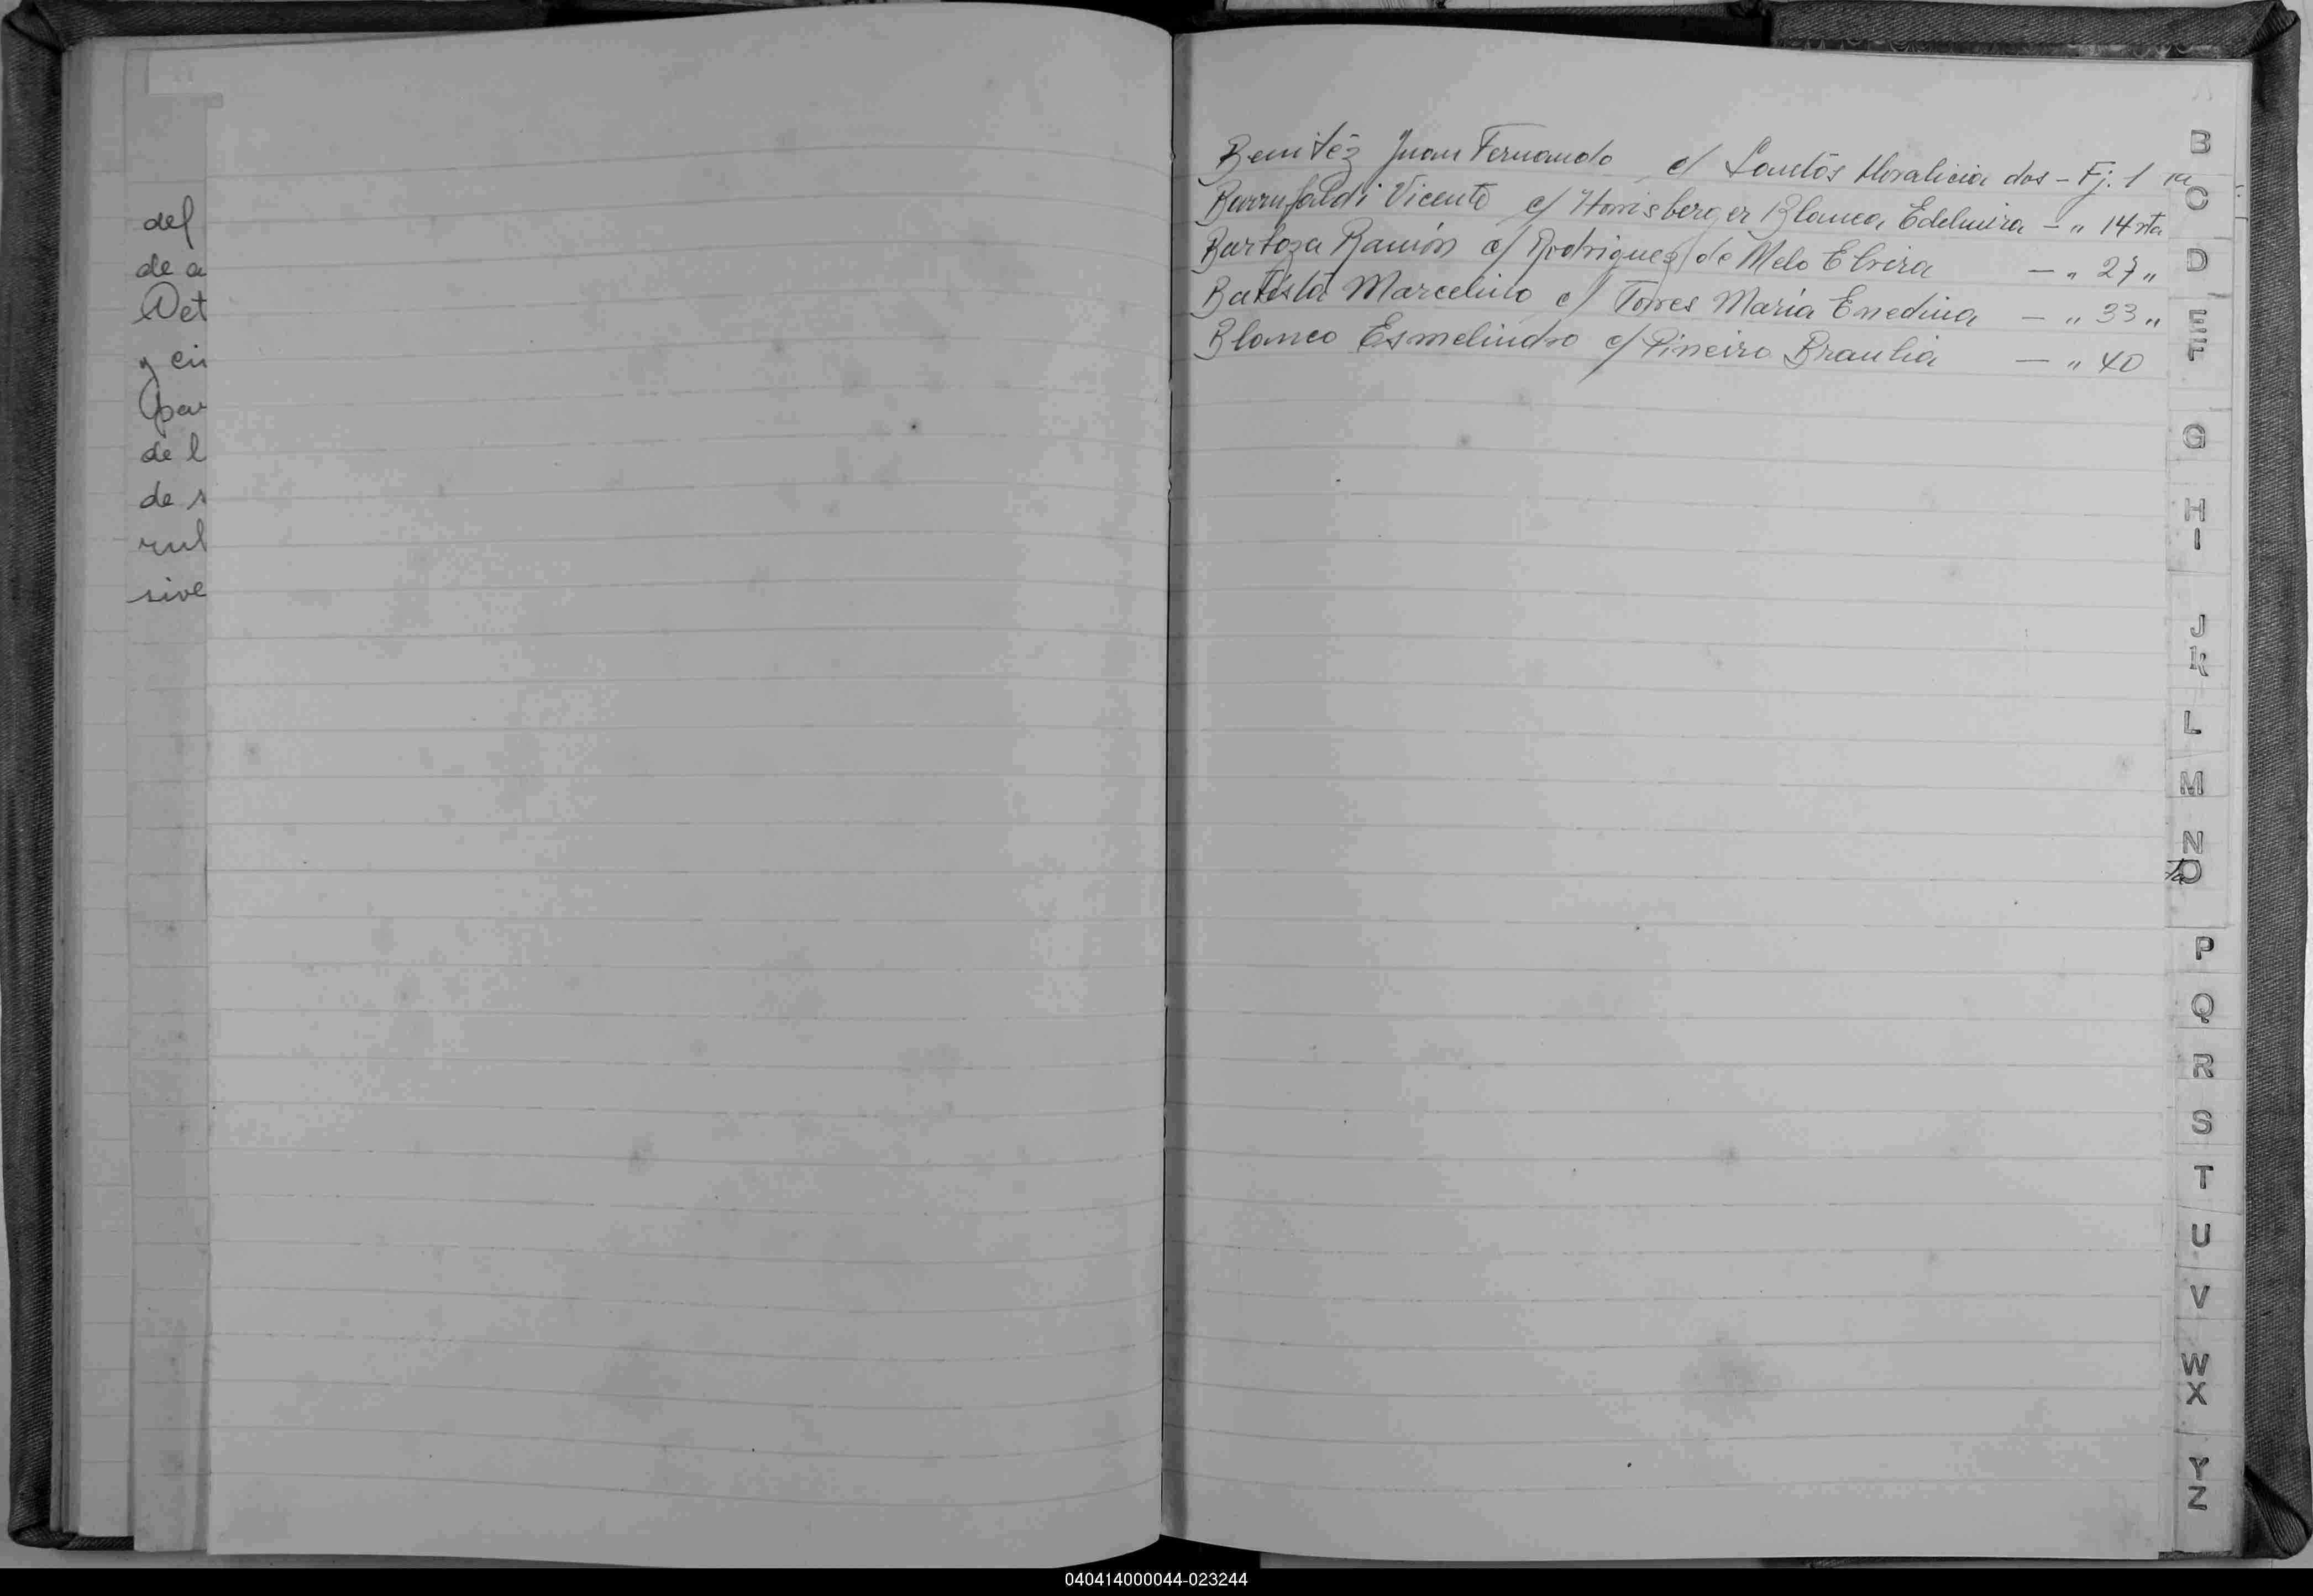 del
de a
Det
y ci
par
de l
de s
rul
sive
Benitéz Juan Fernando c/ Santos Moralicia dos - Fj. 1
Barrufaldi Vicente c/ Hornisberger Blanca Edelmira - " 14 vta
Bartoza Ramón c/ Rodriguez de Melo Elvira - " 27 "
Batista Marcelino c/ Torres María Enedina - " 33 "
Blanco Esmelindro c/ Pineiro Braulia - " 40
B
C
D
E
F
G
H
I
J
K
L
M
N
O
P
Q
R
S
T
U
V
W
X
Y
Z
040414000044-023244